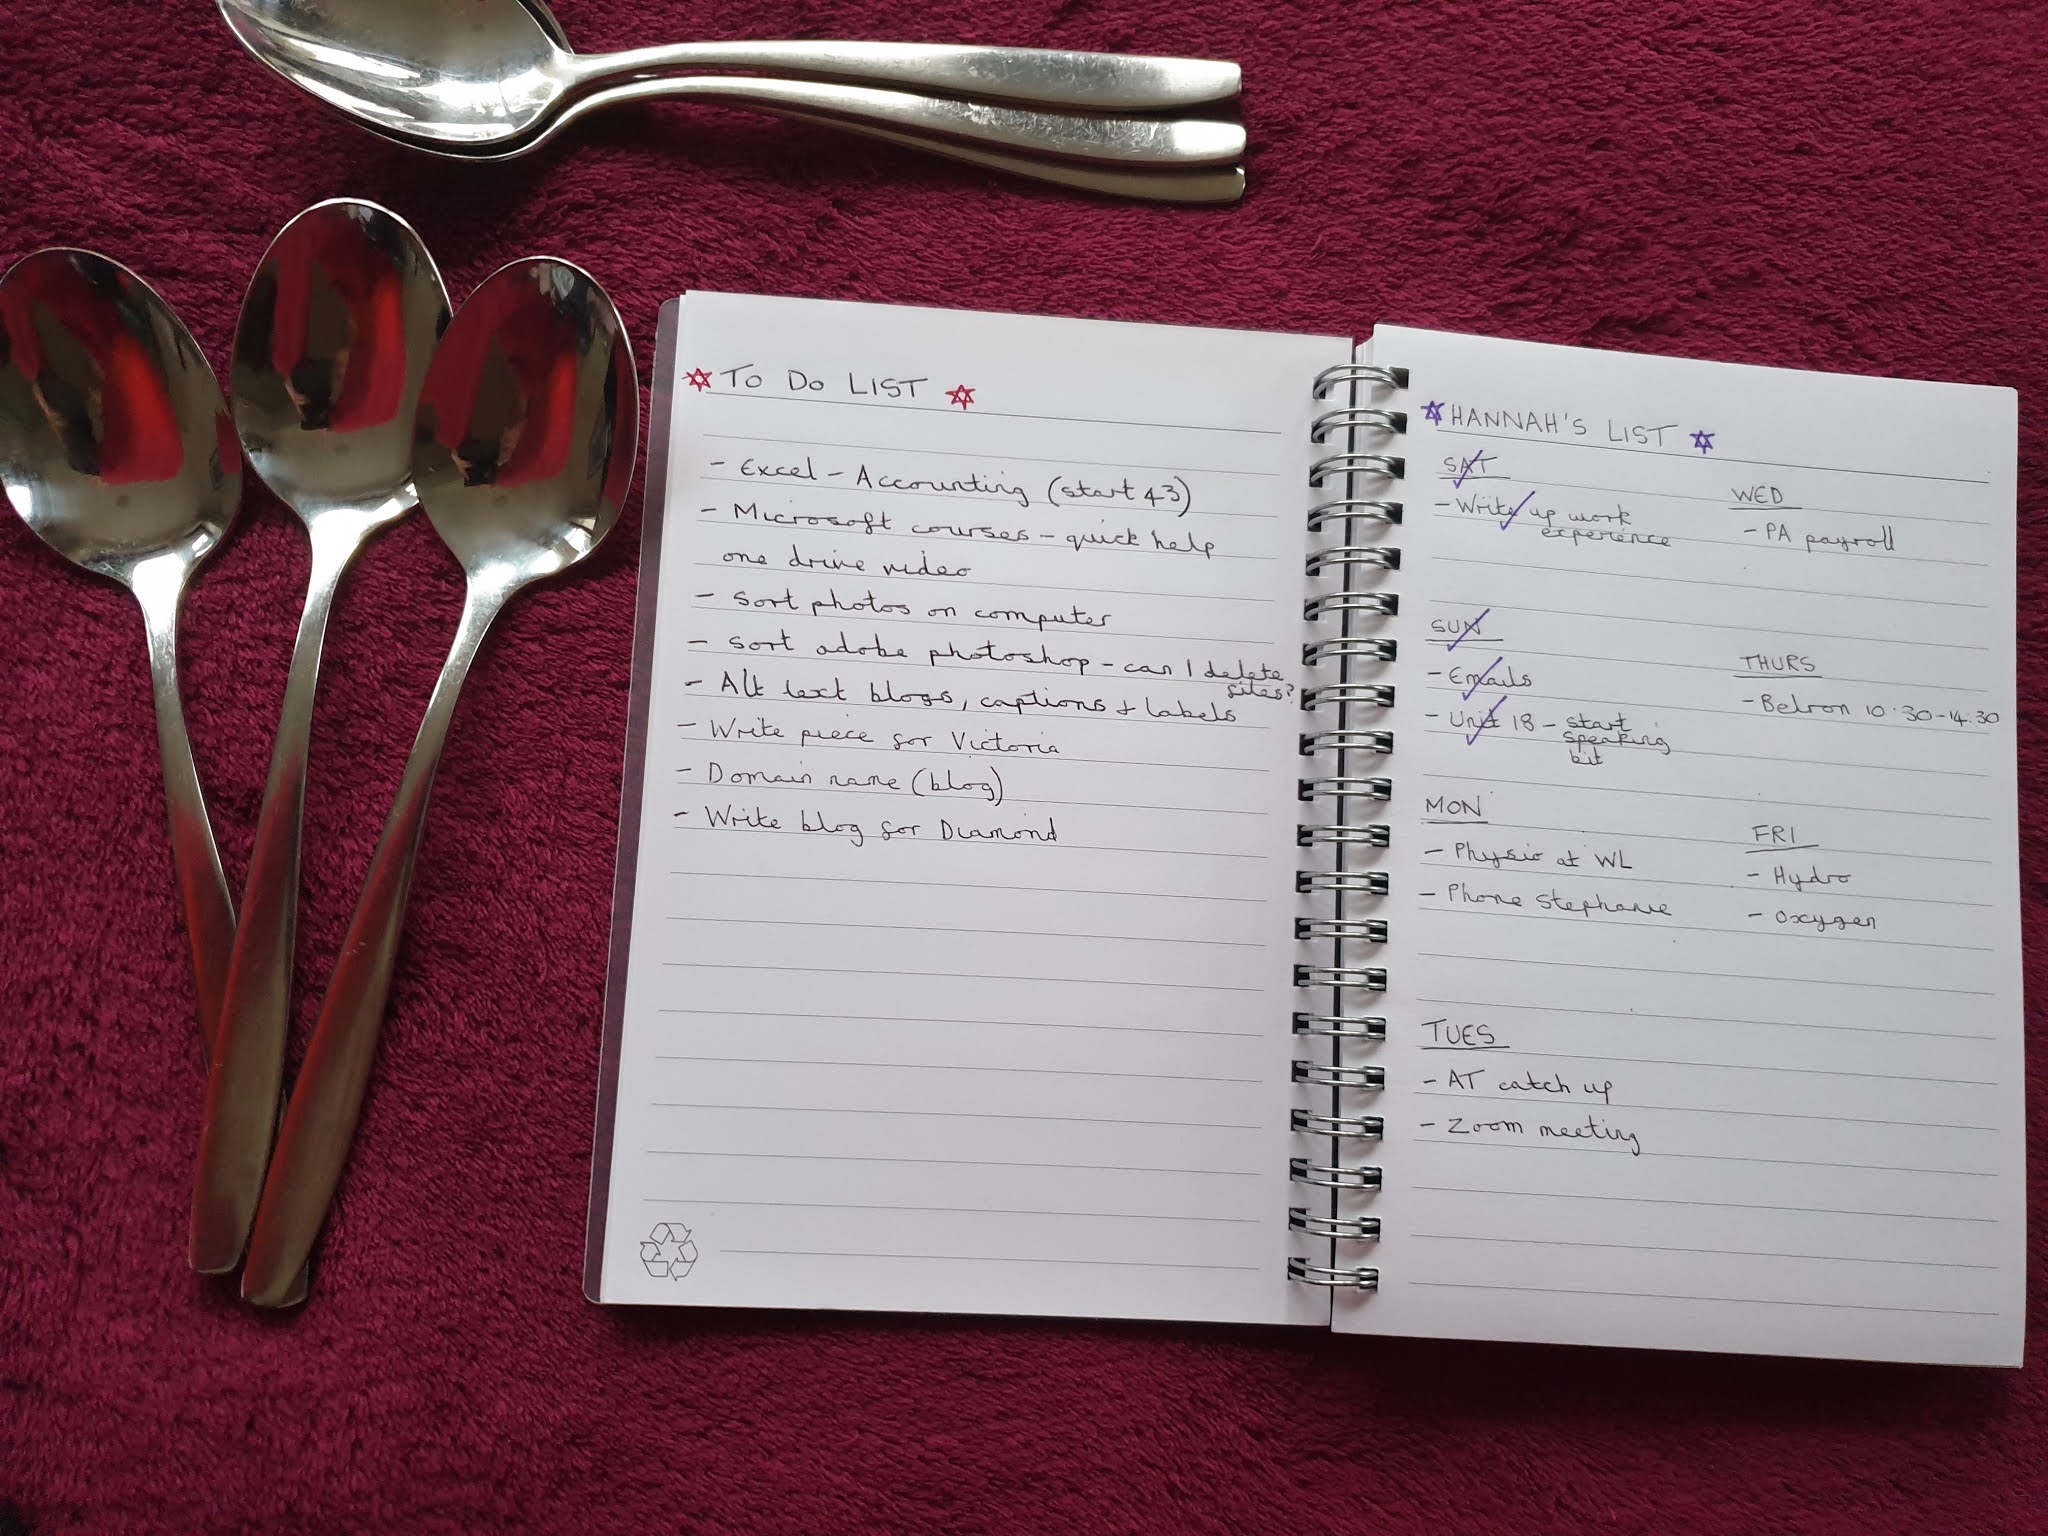 TO DO LIST
- Excel - Accounting (start 43)
- Microsoft courses - quick help
one drive video
- Sort photos on computer
- Sort adobe photoshop - can I delete
files?
- Alt text blogs, captions & labels
- Write piece for Victoria
- Domain name (blog)
- Write blog for Diamond
HANNAH'S LIST
SAT
- Write up work
experience
SUN
- Emails
- Unit 18 - start
speaking
bit
MON
- Physio at WL
- Phone Stephanie
TUES
- AT catch up
- Zoom meeting
WED
- PA payroll
THURS
- Belron 10.30-14.30
FRI
- Hydro
- Oxygen